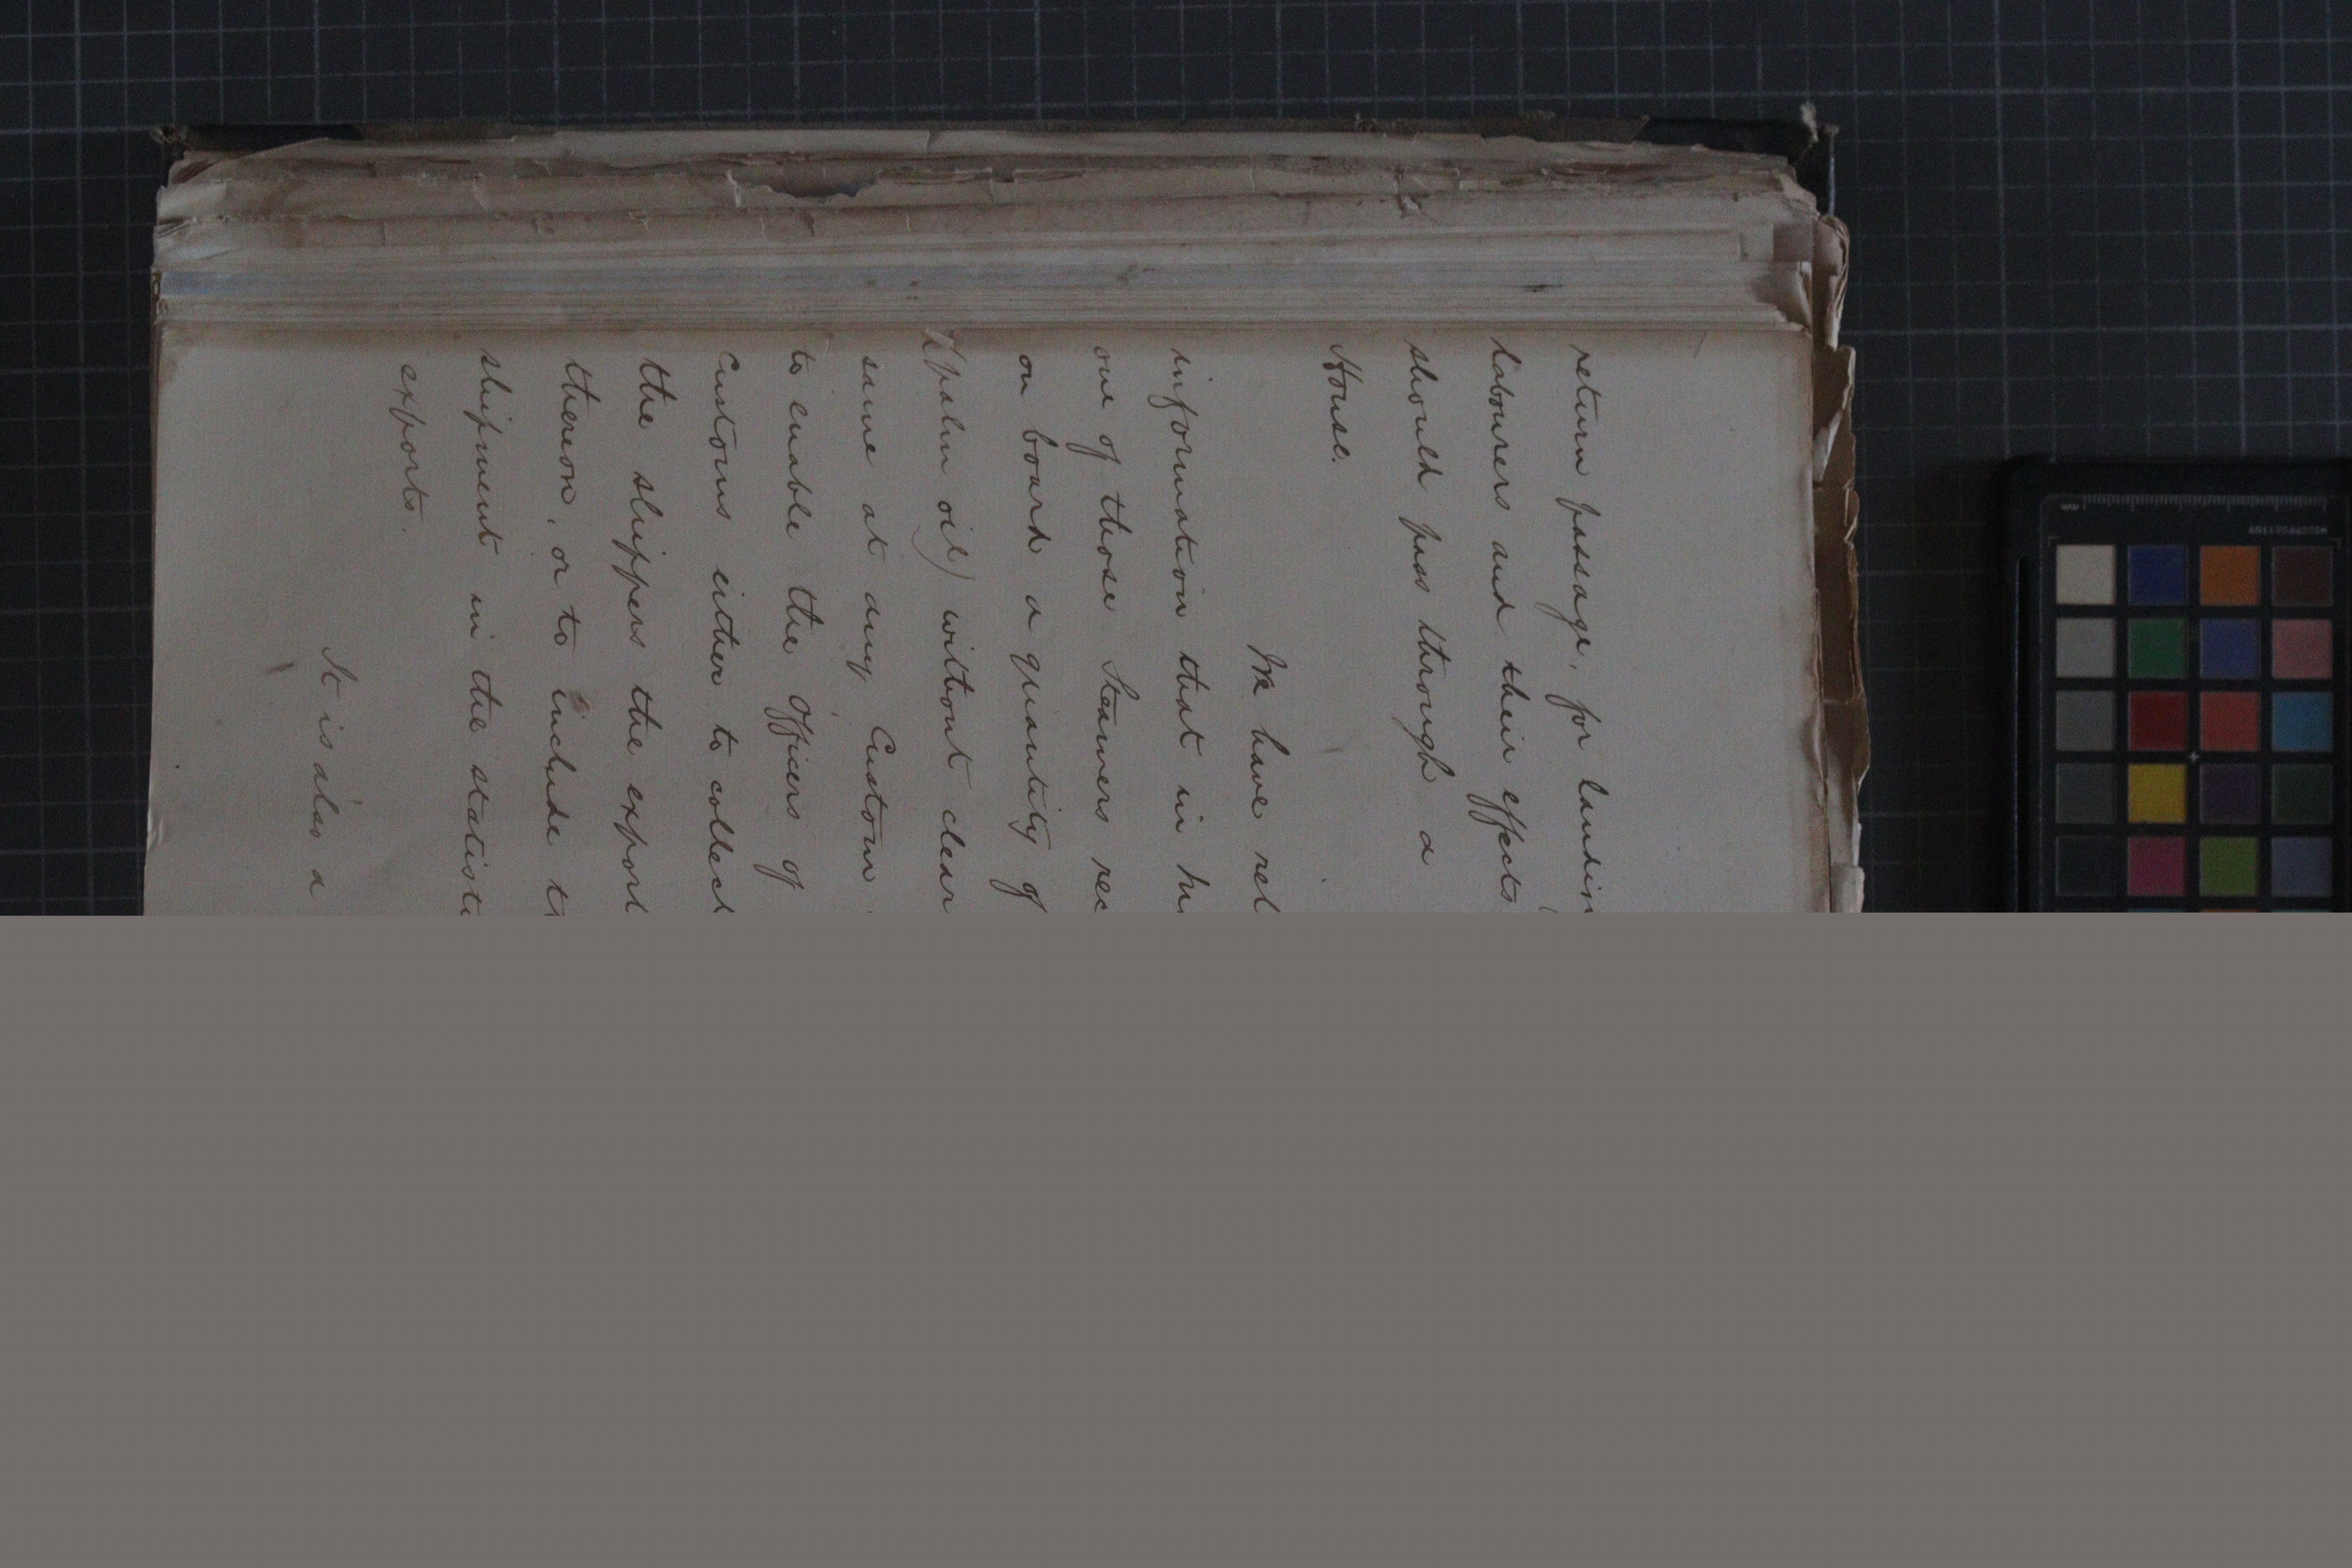 return passage, for landin
labourers and their effects
should pass through a
House.
We have rel
information that in hi
one of those Steamers rec
on board a quantity of
(palm oil) without clear
same at any Custom
to enable the Officers of
Customs either to collect
the shippers the export
thereon, or to include th
shipment in the statisti
exports.
It is also a